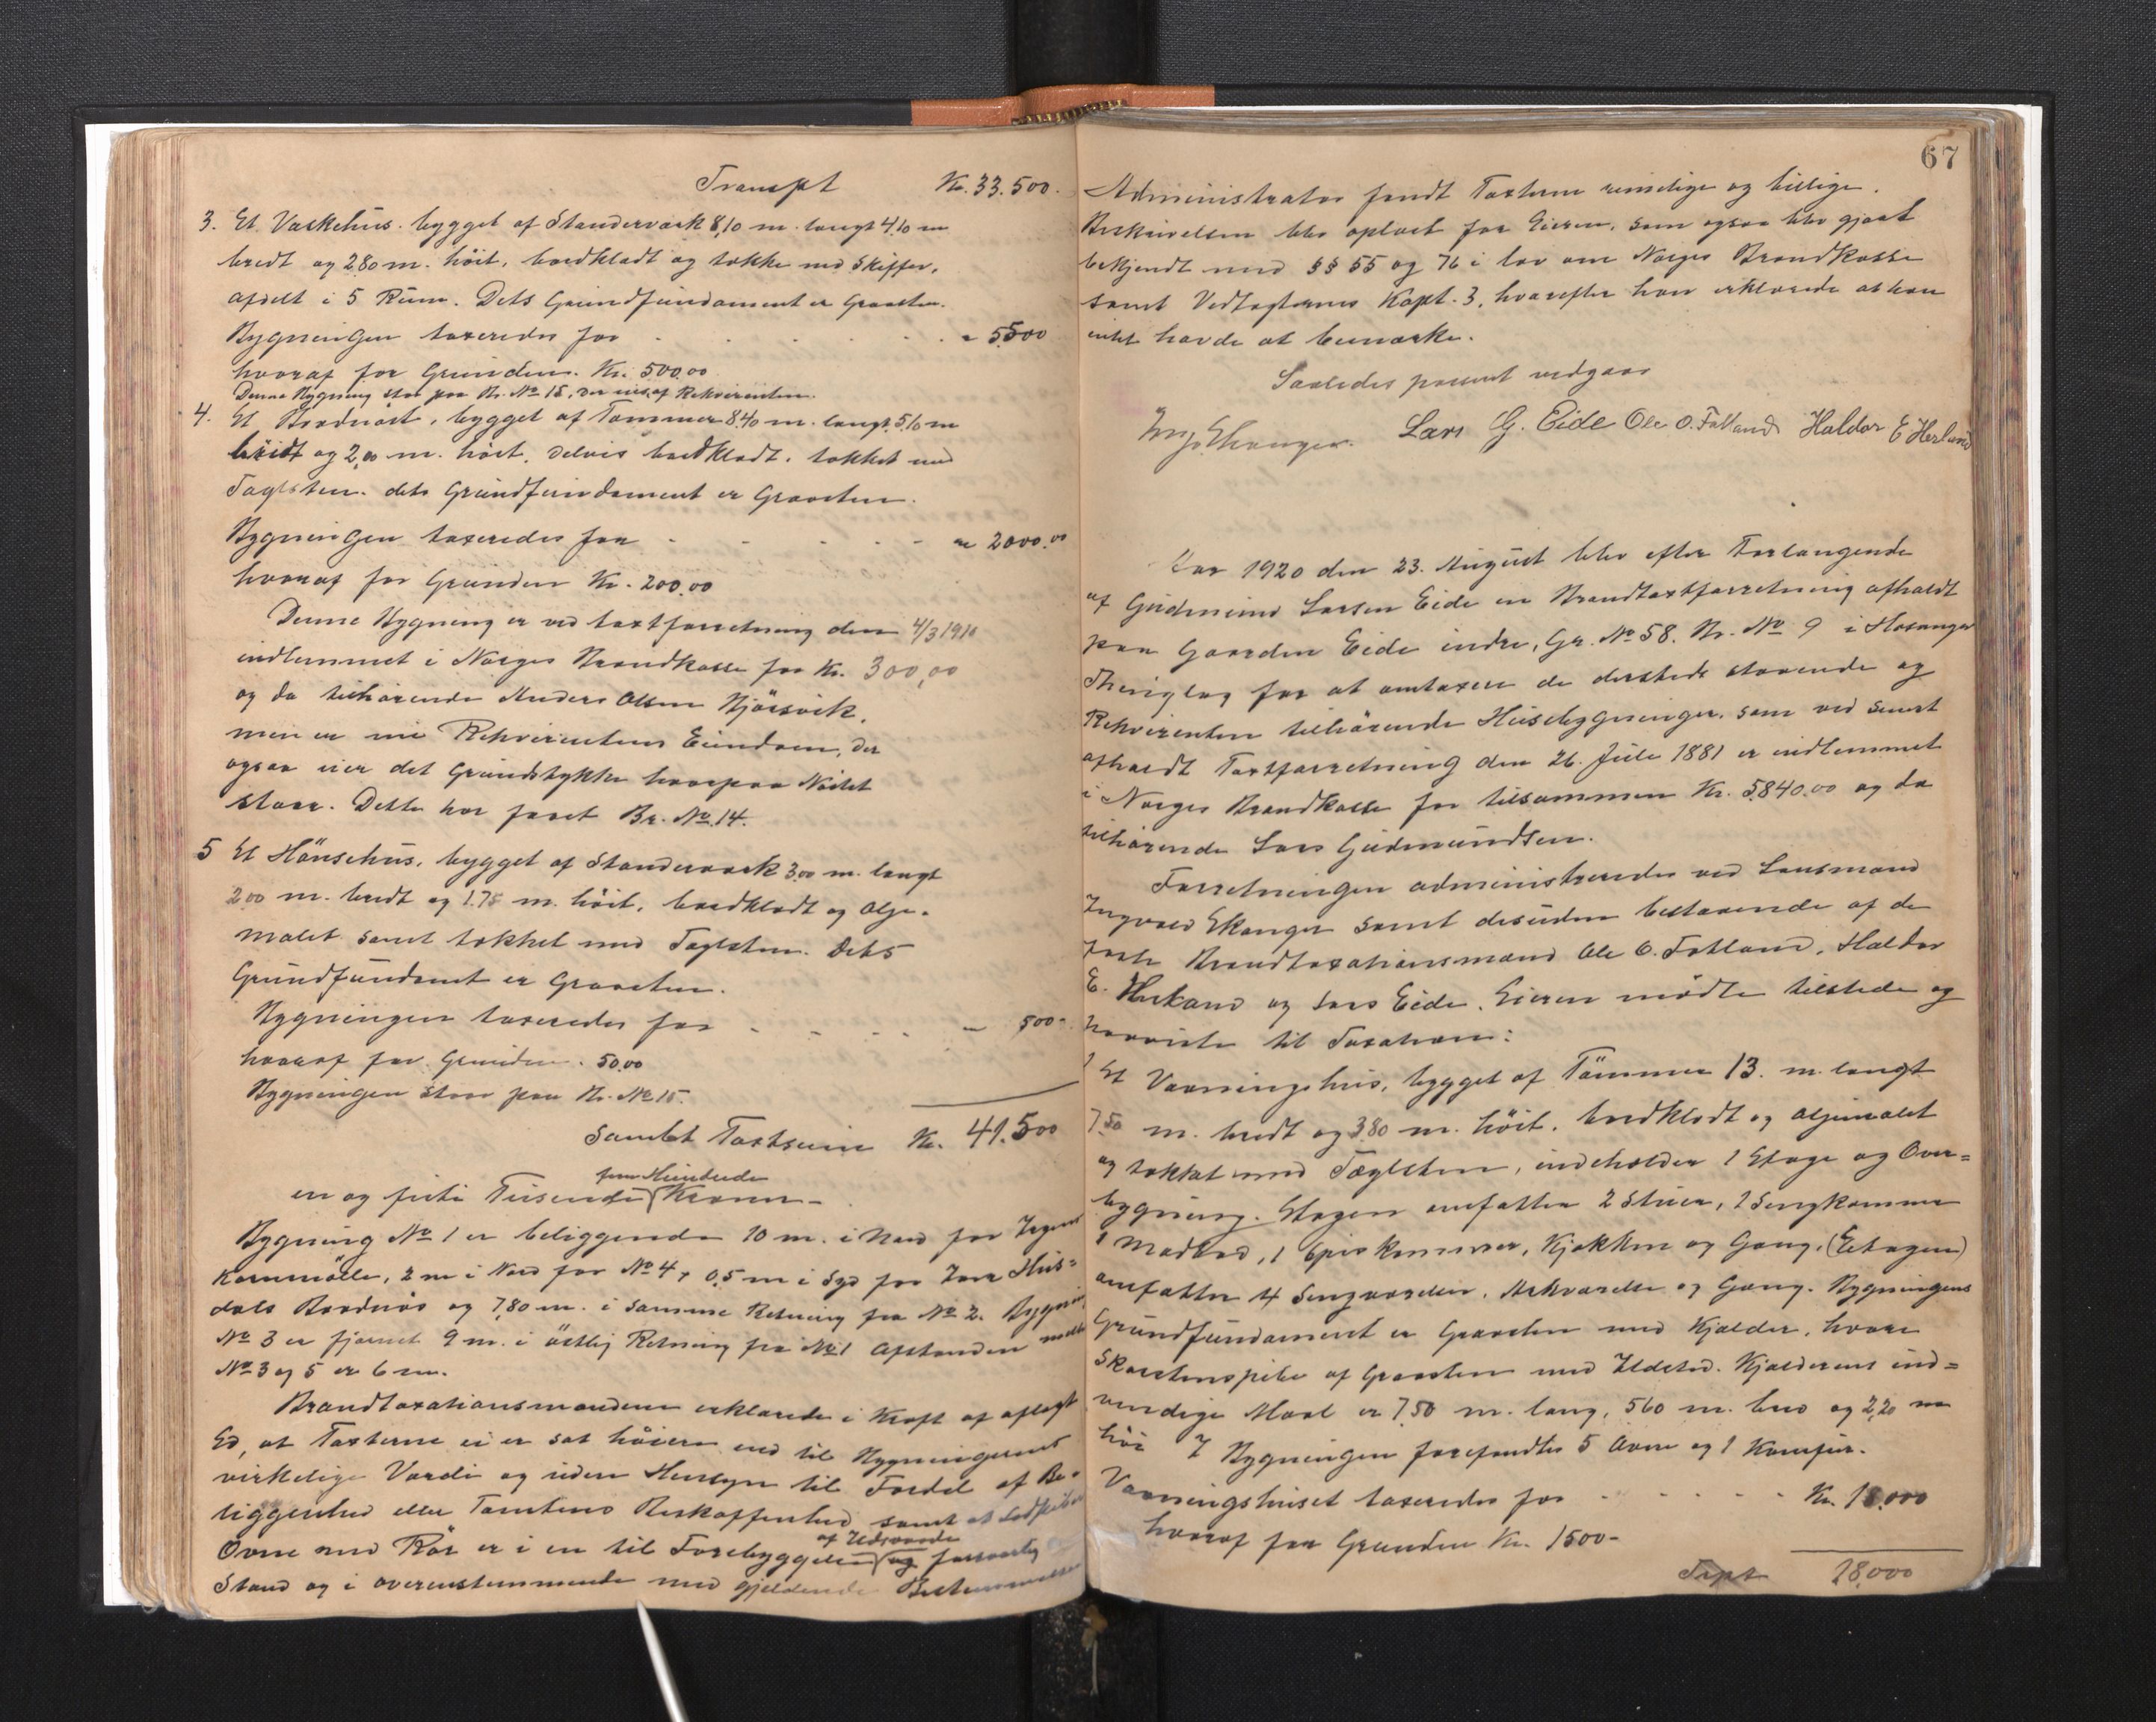 Transpt Kr. 33.500.
3. Et Vaskehus bygget af Standerværk 8,10 m. langt 4,10 m
bredt og 2,80 m. höit, bordklædt og tække med Skiffer,
afdelt i 5 Rum. Dets Grundfundament er Graasten.
Bygningen taxeredes for - - - - - - " 5500
hvoraf for Grunden Kr. 500,00
Denne Bygning staar paa Br. No 15, der eies af Rekvirenten.
4. Et Baadnöst, bygget af Tömmer 8,40 m. langt, 5,10 m
bridt og 2,00 m. höit, delvis bordklædt, tækket med
Taglsten. dets Grundfundament er Graasten.
Bygningen taxeredes for - - - - - " 2000.00
hvoraf for Grunden Kr. 200.00
Denne Bygning er ved taxtforretning den 4/3 1910
indlemmet i Norges Brandkasse for Kr. 300,00
og da tilhörende Anders Olsen Bjørsvik,
men er nu Rekvirentens Eiendom, der
ogsaa eier det Grundstykke hvorpaa Nöstet
staar. Dette har faaet Br. No. 14.
5 Et Hönsehus, bygget af Standerværk 3,00 m. langt
2,00 m. bredt og 1.75 m. höit, bordklædt og olje-
malet samt tækket med Taglsten. Dets
Grundfundamt er Graasten.
Bygningen taxeredes for - - - - " 500-
hvoraf for Grunden. 50.00
Bygningen staar paa Br. No 15.
Samlet Taxtsum Kr. 41.500
fem Hundrede
en og firti Tusende Kroner -
Bygning No 1 er beliggende 10 m. i Nord for
Kornmölle, 2 m i Nord for No 4, 0,5 m i Syd for Hus=
dals Baadnös og 7,80 m. i samme Retning fra No 2. Bygning
No 3 er fjernet 9 m. i östlig Retning fra No 1 Afstanden mellem
No 3 og 5 er 6 m.
Brandtaxationsmændene erklærede i Kraft af aflagt
Ed, at Taxterne ei er sat höiere end til Bygningernes
virkelige Værdi og uden Hensyn til Fordel af Be-
liggenhed eller Tomtens Beskaffenhed samt at
af Ildsvaade
Ovne med Rör er i en til Forebyggelse og forsvarlig
Stand og i overensstemmende med gjeldende Bestemmelser
67
Administrator fandt Taxterne rimelige og billige.
Beskrivelsen blev oplæst for Eieren, som ogsaa blev gjort
bekjendt med §§ 55 og 76 i lov om Norges Brandkasse
samt Vedtægternes Kapt. 3, hvorefter han erklærede at han
intet havde at bemærke.
Saaledes passert vedgaar
Lars G. Eide Ole O. Fotland Haldor E Herland
Aar 1920 den 23. August blev efter Forlangende
af Gudmund Larsen Eide en Brandtaxtforretning afholdt
paa Gaarden Eide indre, Gr. No 58. Br. No 9 i Hosanger
Thinglag for at omtaxere de dersteds staaende og
Rekvirenten tilhörende Husebygninger, som ved senest
afholdt Taxtforretning den 26. Juli 1881 er indlemmet
i Norges Brandkasse for tilsammen Kr. 5840.00 og da
tilhörende Lars Gudmundsen.
Forretningen administreredes ved Lensmand
Ingvald Ekanger samt desuden bestaaende af de
faste Brandtaxationsmænd Ole O. Fotland, Haldor
E. Herland og Lars Eide. Eieren mödte tilstede og
paaviste til Taxation:
1 Et Vaaningshus, bygget af Tömmer 13. m. langt
7,50 m. bredt og 3,80 m. höit, bordklædt og oljemalet
og tækket med Taglsten, indeholder 1 Etage og Over=
bygning. Etagen omfatter 2 Stuer, 1 Sengkammer
1 Madbod, 1 Spiskammer, Kjøkken og Gang, (Etagen)
omfatter 4 Sengværelser, Arkværelse og Gang. Bygningens
Grundfundament er Graasten med Kjælder, hvori
Skorstenspibe af Graasten med Ildsted. Kjælderens ind=
vendige Maal er 7,50 m. lang, 560 m. bred og 2,20 m
höi I Bygningen forefandtes 5 Ovne og 1 Komfur.
Vaaningshuset taxeredes for - - - - - Kr. 18.000
hvoraf for Grunden Kr. 1500-
Trpt 18,000